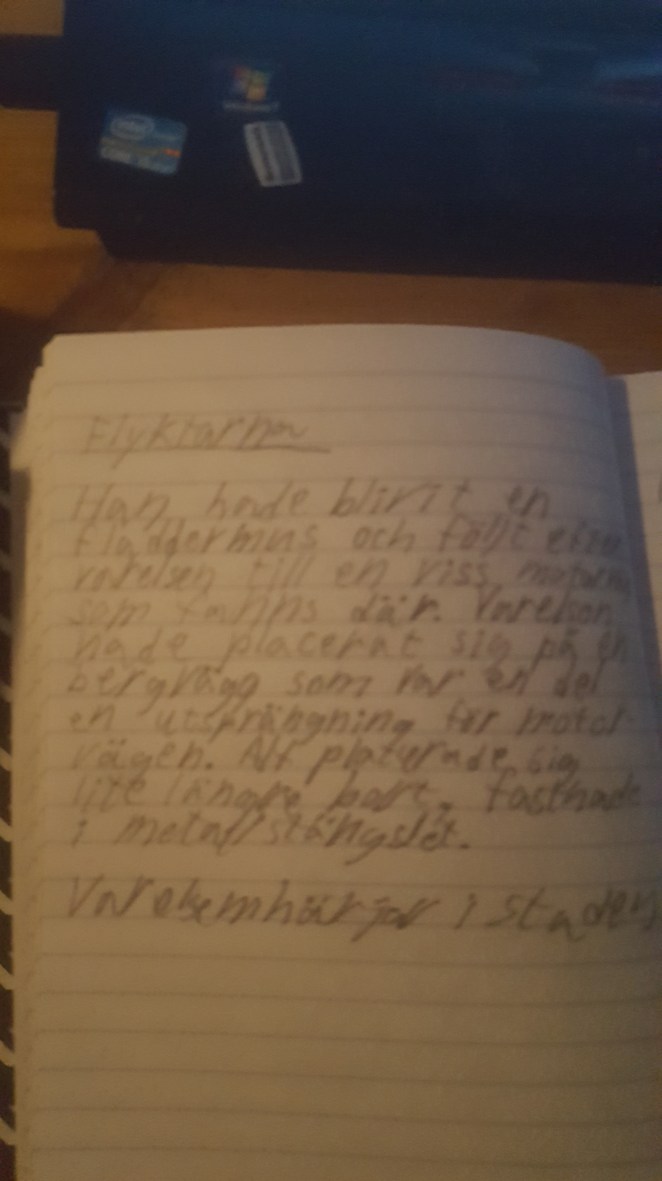 intel
Han hade blivit en
fladdermus och följt efter
varelsen till en viss
som fanns där. Varelsen
hade placerat sig på en
bergvägg som var en del
en utsprängning för motor-
vägen. Alf placerade sig
lite längre bort.
i metallstängslet.
Varelsen härjar i staden